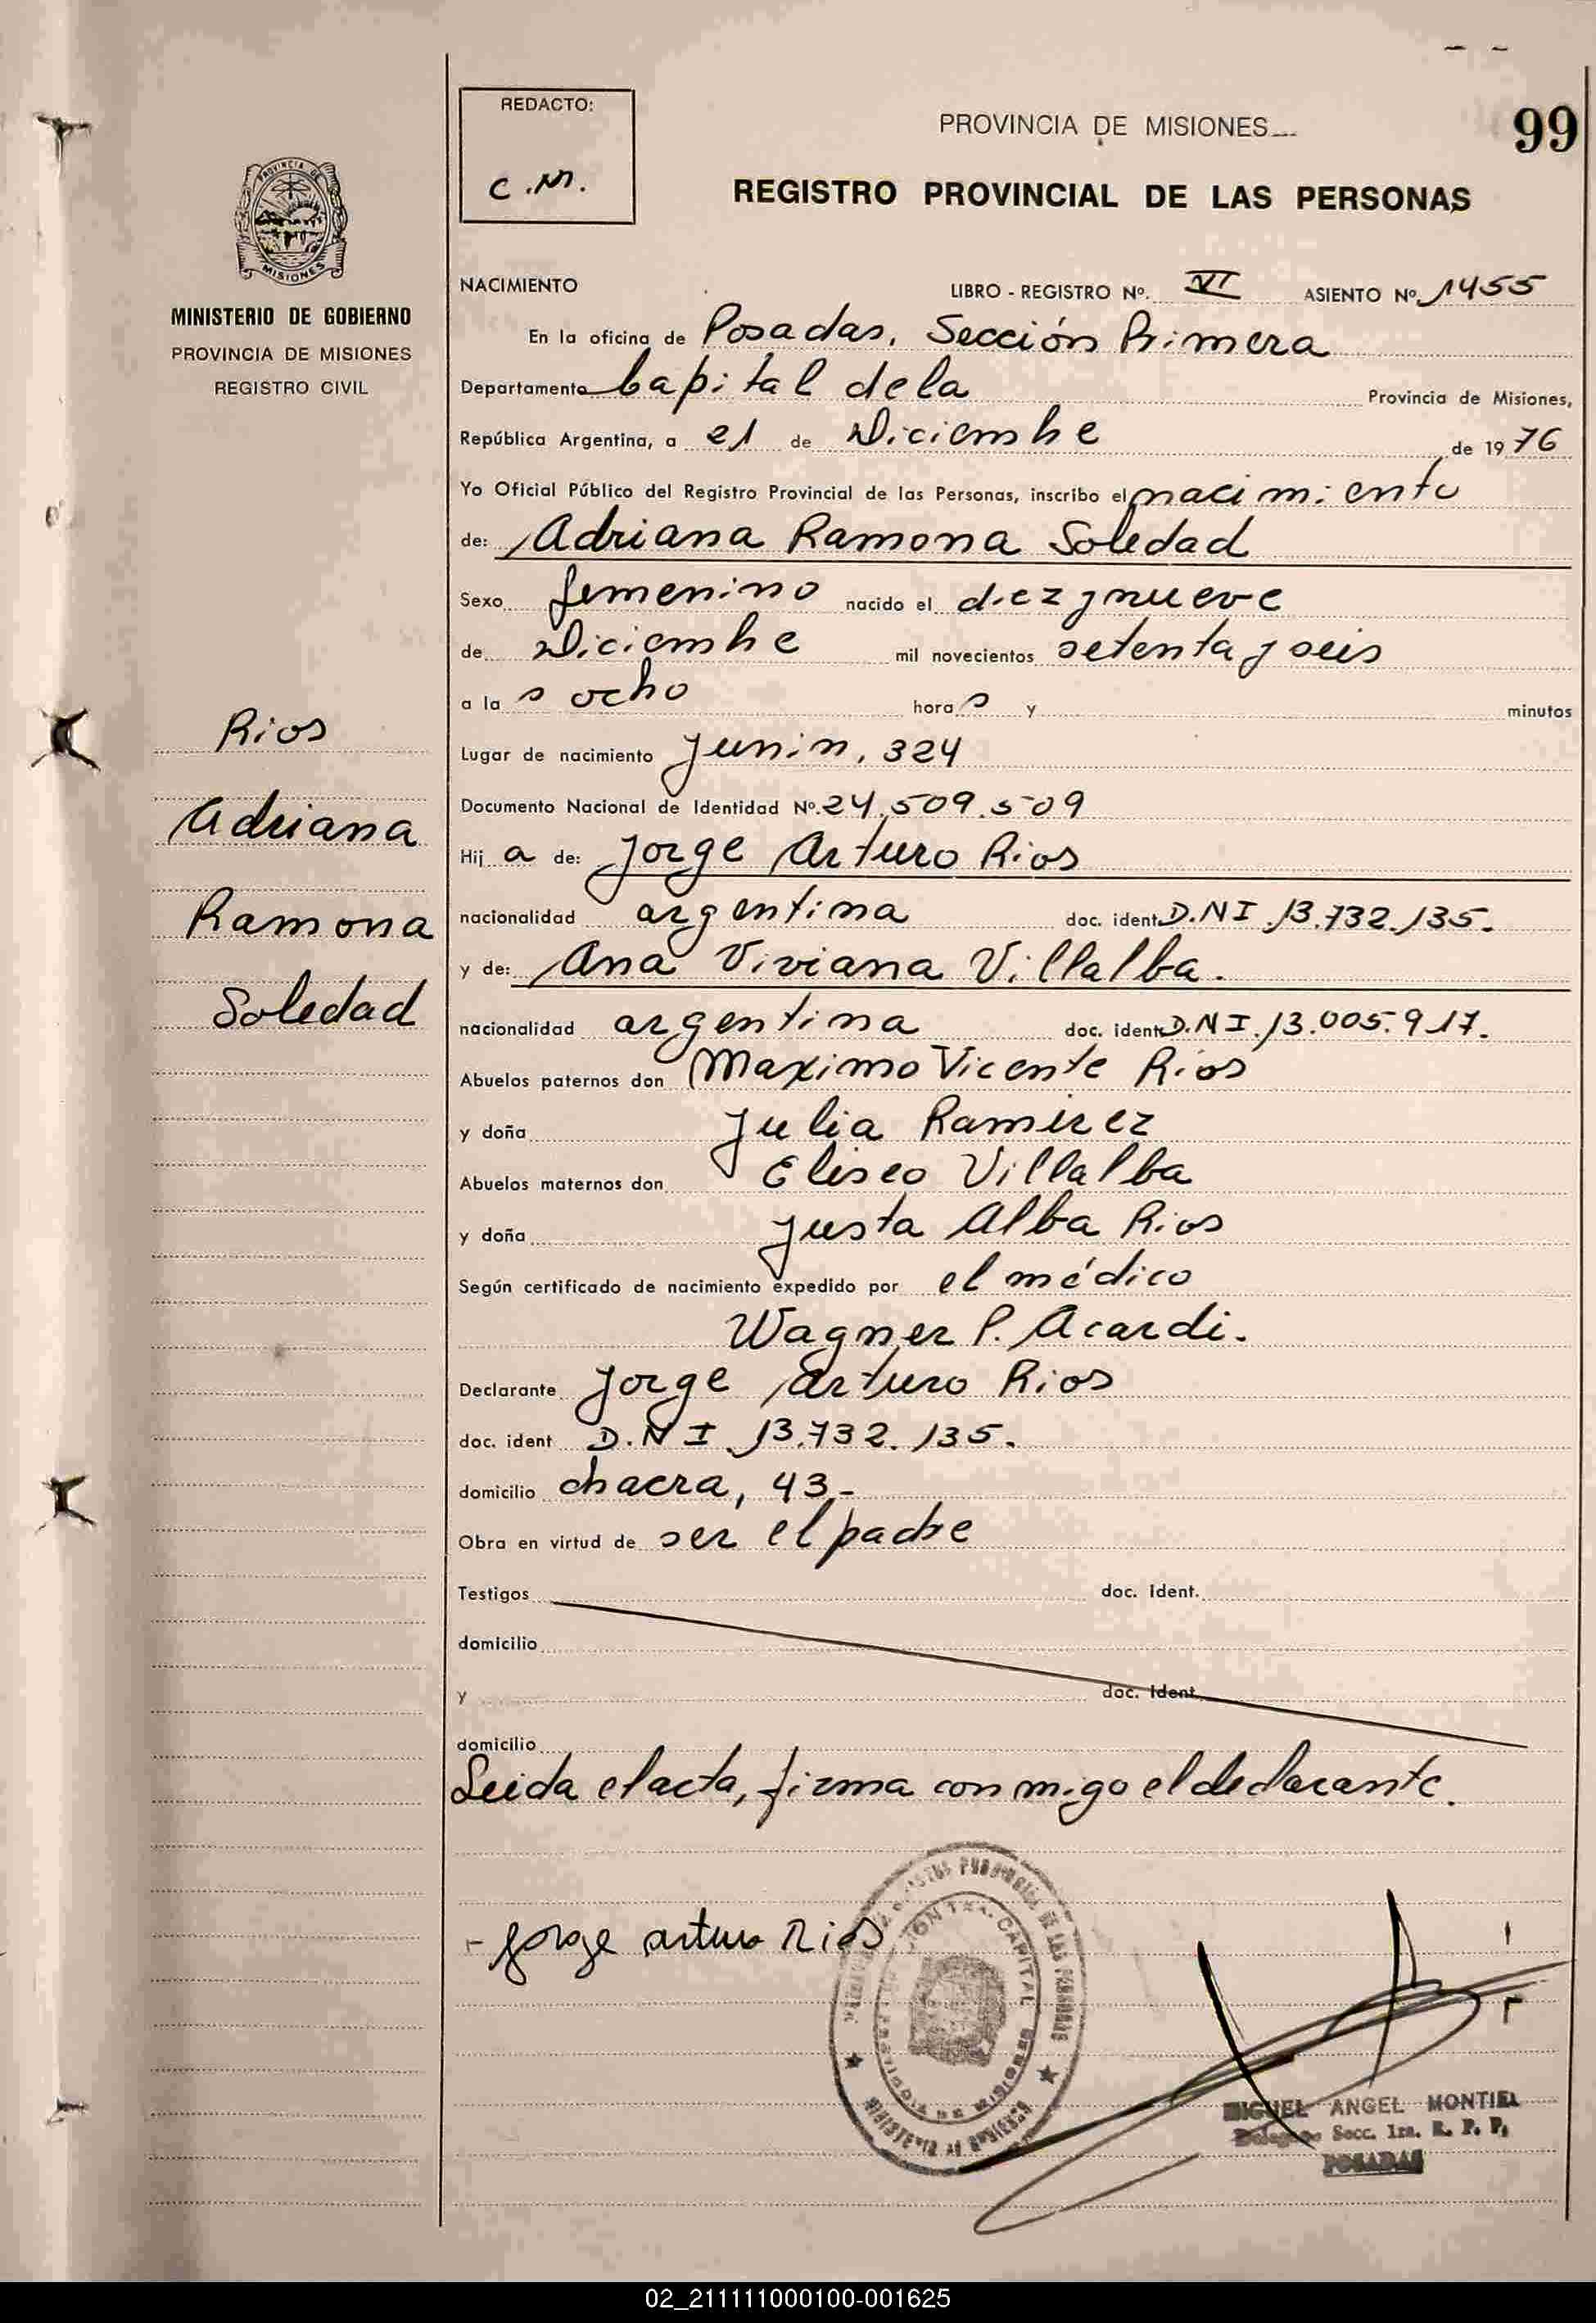 99
REDACTO:
C.M.
PROVINCIA DE MISIONES
REGISTRO PROVINCIAL DE LAS PERSONAS
PROVINCIA DE
MISIONES
MINISTERIO DE GOBIERNO
PROVINCIA DE MISIONES
REGISTRO CIVIL
Rios
Adriana
Ramona
Soledad
NACIMIENTO LIBRO - REGISTRO Nº. VI ASIENTO Nº 1455
En la oficina de Posadas, Sección Primera
Departamento Capital de la Provincia de Misiones,
República Argentina, a 21 de Diciembre de 1976
Yo Oficial Público del Registro Provincial de las Personas, inscribo el nacimiento
de: Adriana Ramona Soledad
Sexo femenino nacido el diez y nueve
de Diciembre mil novecientos setenta y seis
a la s ocho hora s y minutos
Lugar de nacimiento Junin, 324
Documento Nacional de Identidad Nº. 24.509.509
Hij a de: Jorge Arturo Rios
nacionalidad argentina doc. ident. D.N I. 13.732.135.
y de: Ana Viviana Villalba.
nacionalidad argentina doc. ident. D.N I. 13.005.917.
Abuelos paternos don Maximo Vicente Rios
y doña Julia Ramirez
Abuelos maternos don Eliseo Villalba
y doña Justa Alba Rios
Según certificado de nacimiento expedido por el médico
Wagner P. Acardi.
Declarante Jorge Arturo Rios
doc. ident D.N I. 13.732.135.
domicilio chacra, 43.-
Obra en virtud de ser el padre
Testigos doc. Ident.
domicilio
y doc. Ident.
domicilio
Leida el acta, firma conmigo el declarante.
- Jorge arturo Rios
CAPITAL
DE LAS PERSONAS
MIGUEL ANGEL MONTIEL
Delegado Secc. 1ra. R. P. P.
POSADAS
02_211111000100-001625